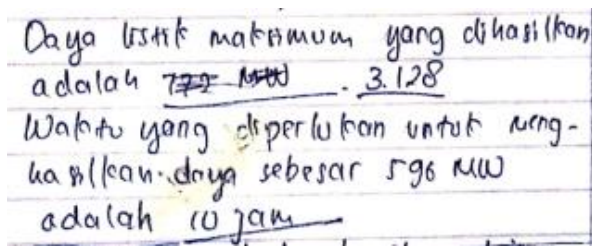 Daya listrik maksimum yang dihasilkan
adalah 772 MW . 3.128
Waktu yang diperlukan untuk meng-
hasilkan daya sebesar 596 MW
adalah 10 jam